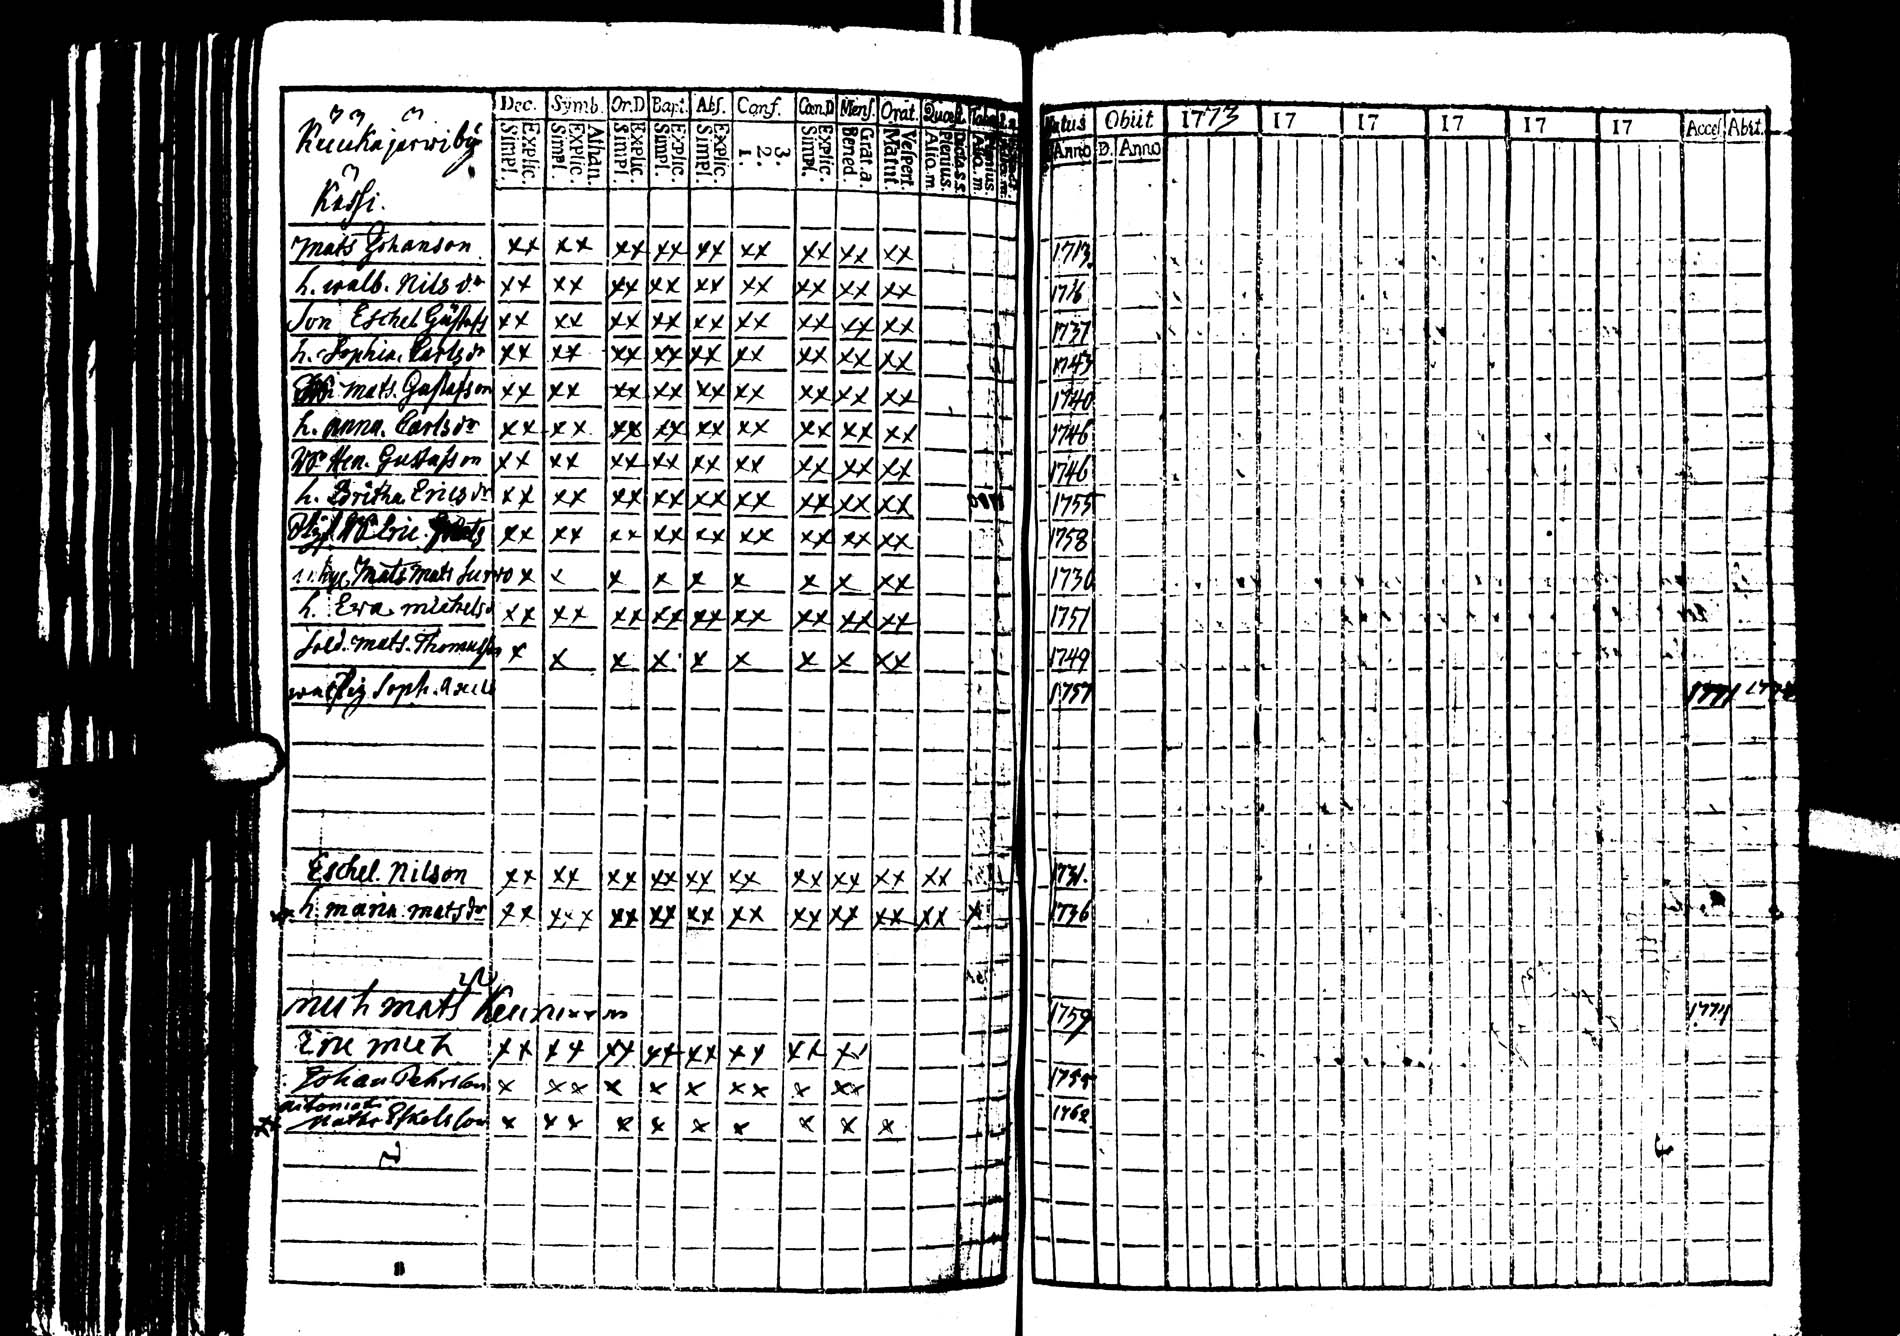 Dec. Symb. Or.D Bapt. Abs. Conf. Can.D Mens. Orat. Quæst.
Natus Obiit 1773 17 17 17 17 17 Acces. Abit.
Anno D. Anno
Simpl. Explic. Simpl. Explic. Athan. Simpl. Explic. Simpl. Explic. Simpl. Explic. 1. 2. 3. Simpl. Explic. Bened. Grat.a. Matut. Vespert. Alio.m. Plenius.
Kuukajarwi by
Kåssi.
Mats Johanson xx xx xx xx xx xx xx xx xx 1713
h. walb. Nils dr xx xx xx xx xx xx xx xx xx 1716
Son Eschel Gustafs xx xx xx xx xx xx xx xx xx 1737
h. Sophia Carls dr xx xx xx xx xx xx xx xx xx 1743
mats. Gustafson xx xx xx xx xx xx xx xx xx 1740
h. anna. Carls dr xx xx xx xx xx xx xx xx xx 1746
Hen. Gustafson xx xx xx xx xx xx xx xx xx 1746
h. Britha Erics dr xx xx xx xx xx xx xx xx xx 1755
Eric xx xx xx xx xx xx xx xx xx 1758
Mats Mats x x x x x x x x xx 1730
h. Ewa michels d xx xx xx xx xx xx xx xx xx 1751
Sold. mats. Thomass x x x x x x x x xx 1749
Soph. Axel 1757 1771
Eschel Nilson xx xx xx xx xx xx xx xx xx xx 1731.
h. maria mats dr xx xxx xx xx xx xx xx xx xx xx x 1736
mich mats 1759 1774
Eric mich xx xx xx xx xx xx xx xx
Johan Pehrson x xx x x x xx x xx 1755
Matts Eskelson x xx x x x x x x x 1762